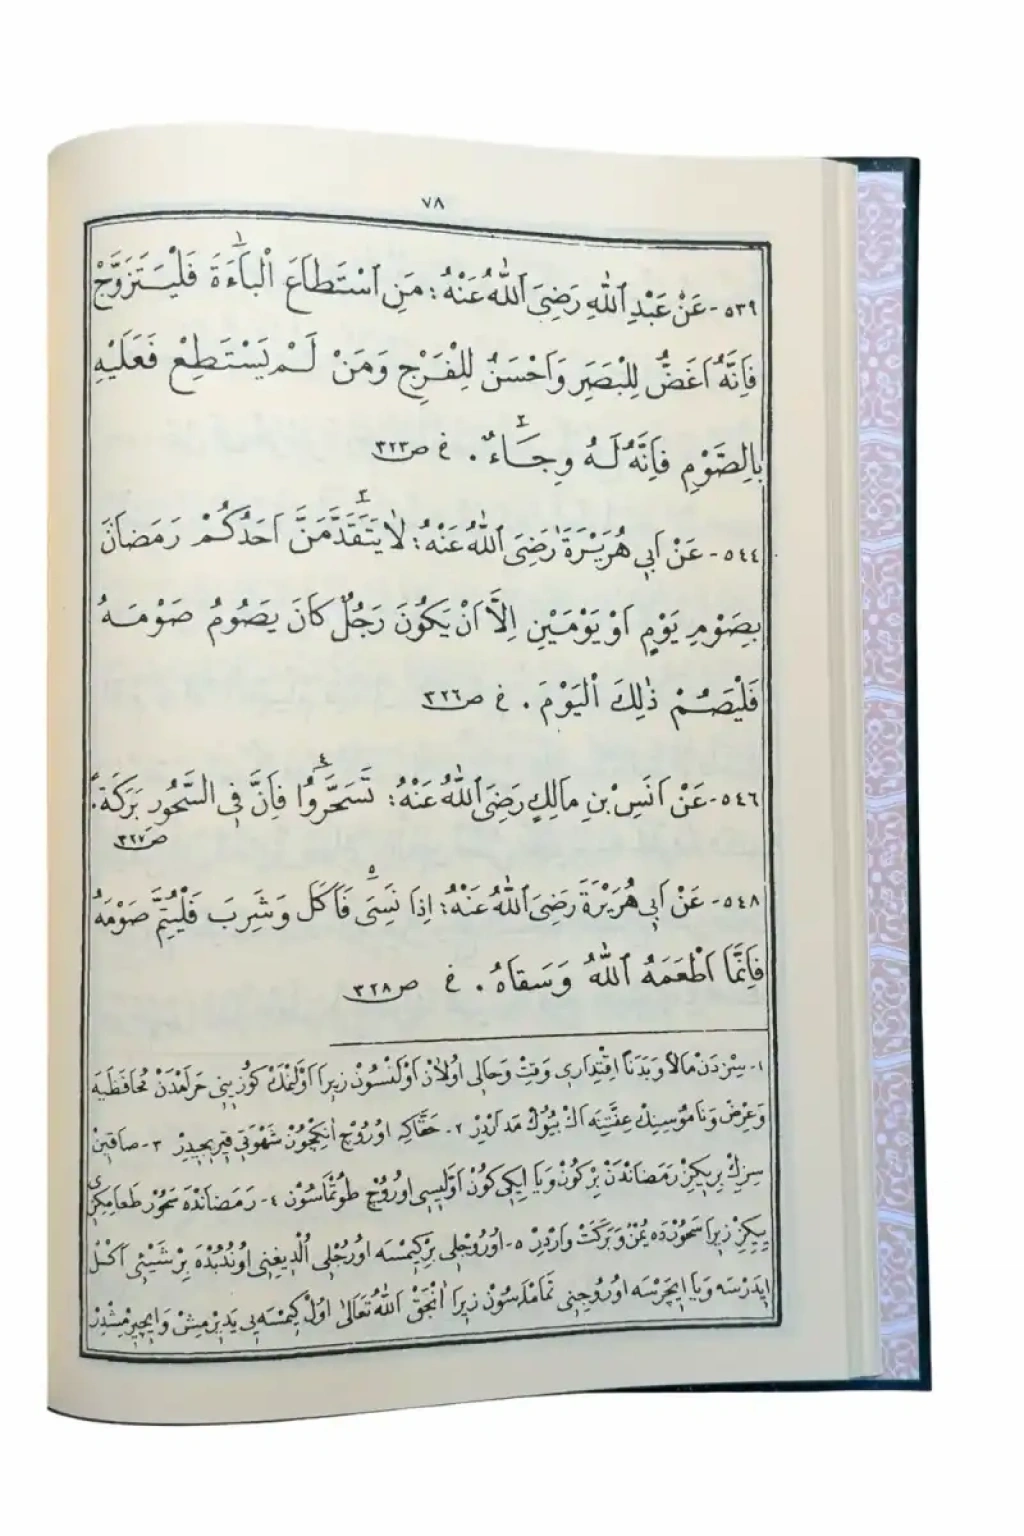 ٧٨
٥٣٩- عَنْ عَبْدِ اللّٰهِ رَضِيَ اللّٰهُ عَنْهُ : مَنِ اسْتَطَاعَ الْبَاءَةَ ١ فَلْيَتَزَوَّجْ
فَاِنَّهُ اَغَضُّ لِلْبَصَرِ وَاَحْسَنُ لِلْفَرْجِ وَمَنْ لَمْ يَسْتَطِعْ فَعَلَيْهِ
بِالصَّوْمِ فَاِنَّهُ لَهُ وِجَاءٌ ٢ . فى ص ٣٢٣
٥٤٤- عَنْ اَبِي هُرَيْرَةَ رَضِيَ اللّٰهُ عَنْهُ : لَا يَتَقَدَّمَنَّ ٣ اَحَدُكُمْ رَمَضَانَ
بِصَوْمِ يَوْمٍ اَوْ يَوْمَيْنِ اِلَّا اَنْ يَكُونَ رَجُلٌ كَانَ يَصُومُ صَوْمَهُ
فَلْيَصُمْ ذٰلِكَ الْيَوْمَ . فى ص ٣٢٦
٥٤٦- عَنْ اَنَسِ بْنِ مَالِكٍ رَضِيَ اللّٰهُ عَنْهُ : تَسَحَّرُوا ٤ فَاِنَّ فِي السَّحُورِ بَرَكَةً .
ص ٣٢٧
٥٤٨- عَنْ اَبِي هُرَيْرَةَ رَضِيَ اللّٰهُ عَنْهُ : اِذَا نَسِيَ ٥ فَاَكَلَ وَشَرِبَ فَلْيُتِمَّ صَوْمَهُ
فَاِنَّمَا اَطْعَمَهُ اللّٰهُ وَسَقَاهُ . فى ص ٣٢٨
١- سِزْدَنْ مَالاً وَبَدَنًا اِقْتِدَارِى وَقِتْ وَحَالِى اُولَانْ اَوْلَنْسُونْ زِيرَا اَوْلَنْمَكْ كُوزِينِى حَرَامْدَنْ مُحَافَظَيَه
وَعِرْضْ وَنَامُوسِينِكْ عِفَّتِنَه اَكْ بُيُوكْ مَدَارْدِرْ ٢- حَقَّاكِه اُورُوجْ اَنِكْچُونْ شَهْوَتِى قِيرِيجِيدِرْ ٣- صَاقِينْ
سِزِكْ بِرِيكِزْ رَمَضَانْدَنْ بِرْكُونْ وَيَا اِيكِى كُونْ اَوَّلِيسِى اُورُوجْ طُوتْمَاسُونْ ٤- رَمَضَانْدَه سَحُورْ طَعَامِكِزِى
يِيكِزْ زِيرَا سَحُورْدَه يُمْنْ وَبَرَكَتْ وَارْدِرْ ٥- اُورُوجْلِى بِرْكِيمْسَه اُورُجْلِى اُلْدِيغِنِى اُونُدُبْدَه بِرْ شَيْئِى اَكْلْ
اِيدَرْسَه وَيَا اِيچَرْسَه اُورُوجِنِى تَمَامْلَاسُونْ زِيرَا اَنْجَقْ اَللّٰهُ تَعَالٰى اُولْ كِيمْسَه يِى يَدِيرْمِشْ وَاِيچِيرْمِشْدِرْ